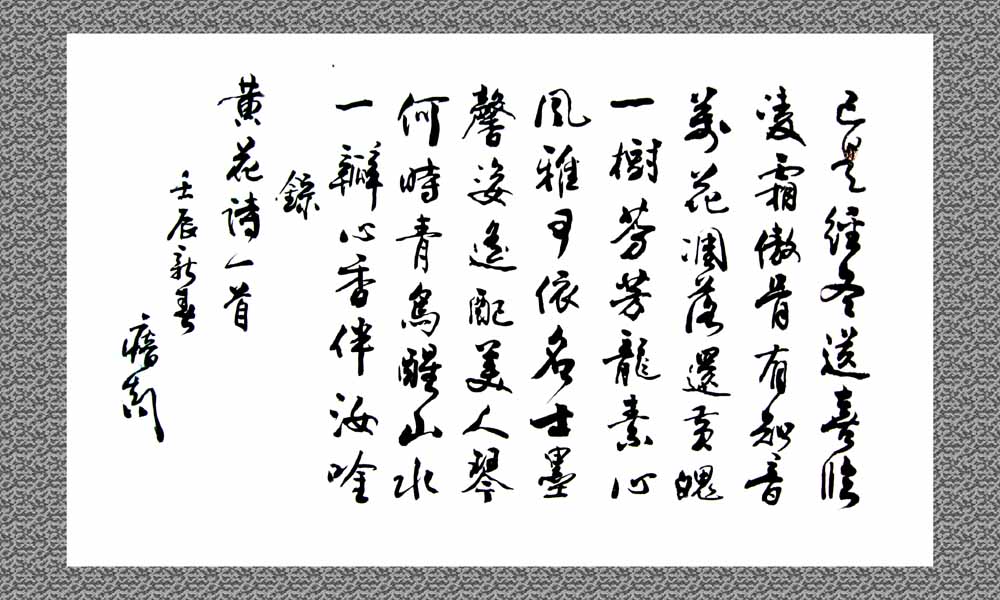 已是經冬送喜臨
凌霜傲骨有知音
萬花凋落還黄魄
一樹芬芳龍素心
風雅依名士墨
馨姿遙配美人琴
何時青鳥醒山水
一瓣心香伴汝唫
錄
黄花詩一首
壬辰新春